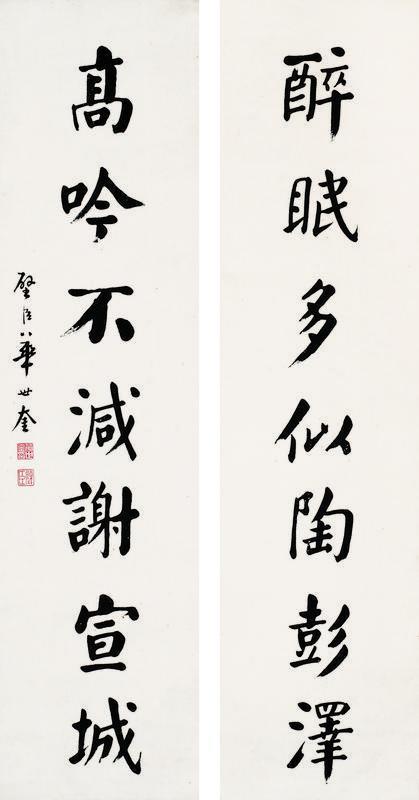 醉眠多似陶彭澤
髙吟不減謝宣城
璧臣華世奎